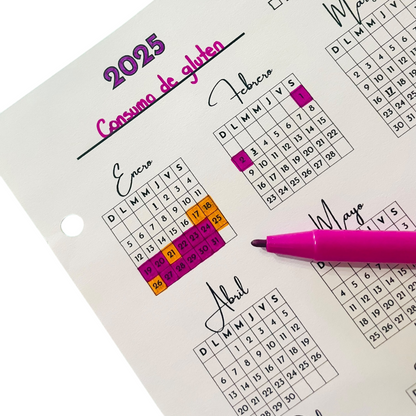 2025
Consumo de gluten
Enero
D L M M J V S
1 2 3 4
5 6 7 8 9 10 11
12 13 14 15 16 17 18
19 20 21 22 23 24 25
26 27 28 29 30 31
Febrero
D L M M J V S
1
2 3 4 5 6 7 8
9 10 11 12 13 14 15
16 17 18 19 20 21 22
23 24 25 26 27 28
D L M M
Mayo
D L M M
Abril
D L M M J V S
1 2 3 4 5
6 7 8 9 10 11 12
13 14 15 16 17 18 19
20 21 22 23 24 25 26